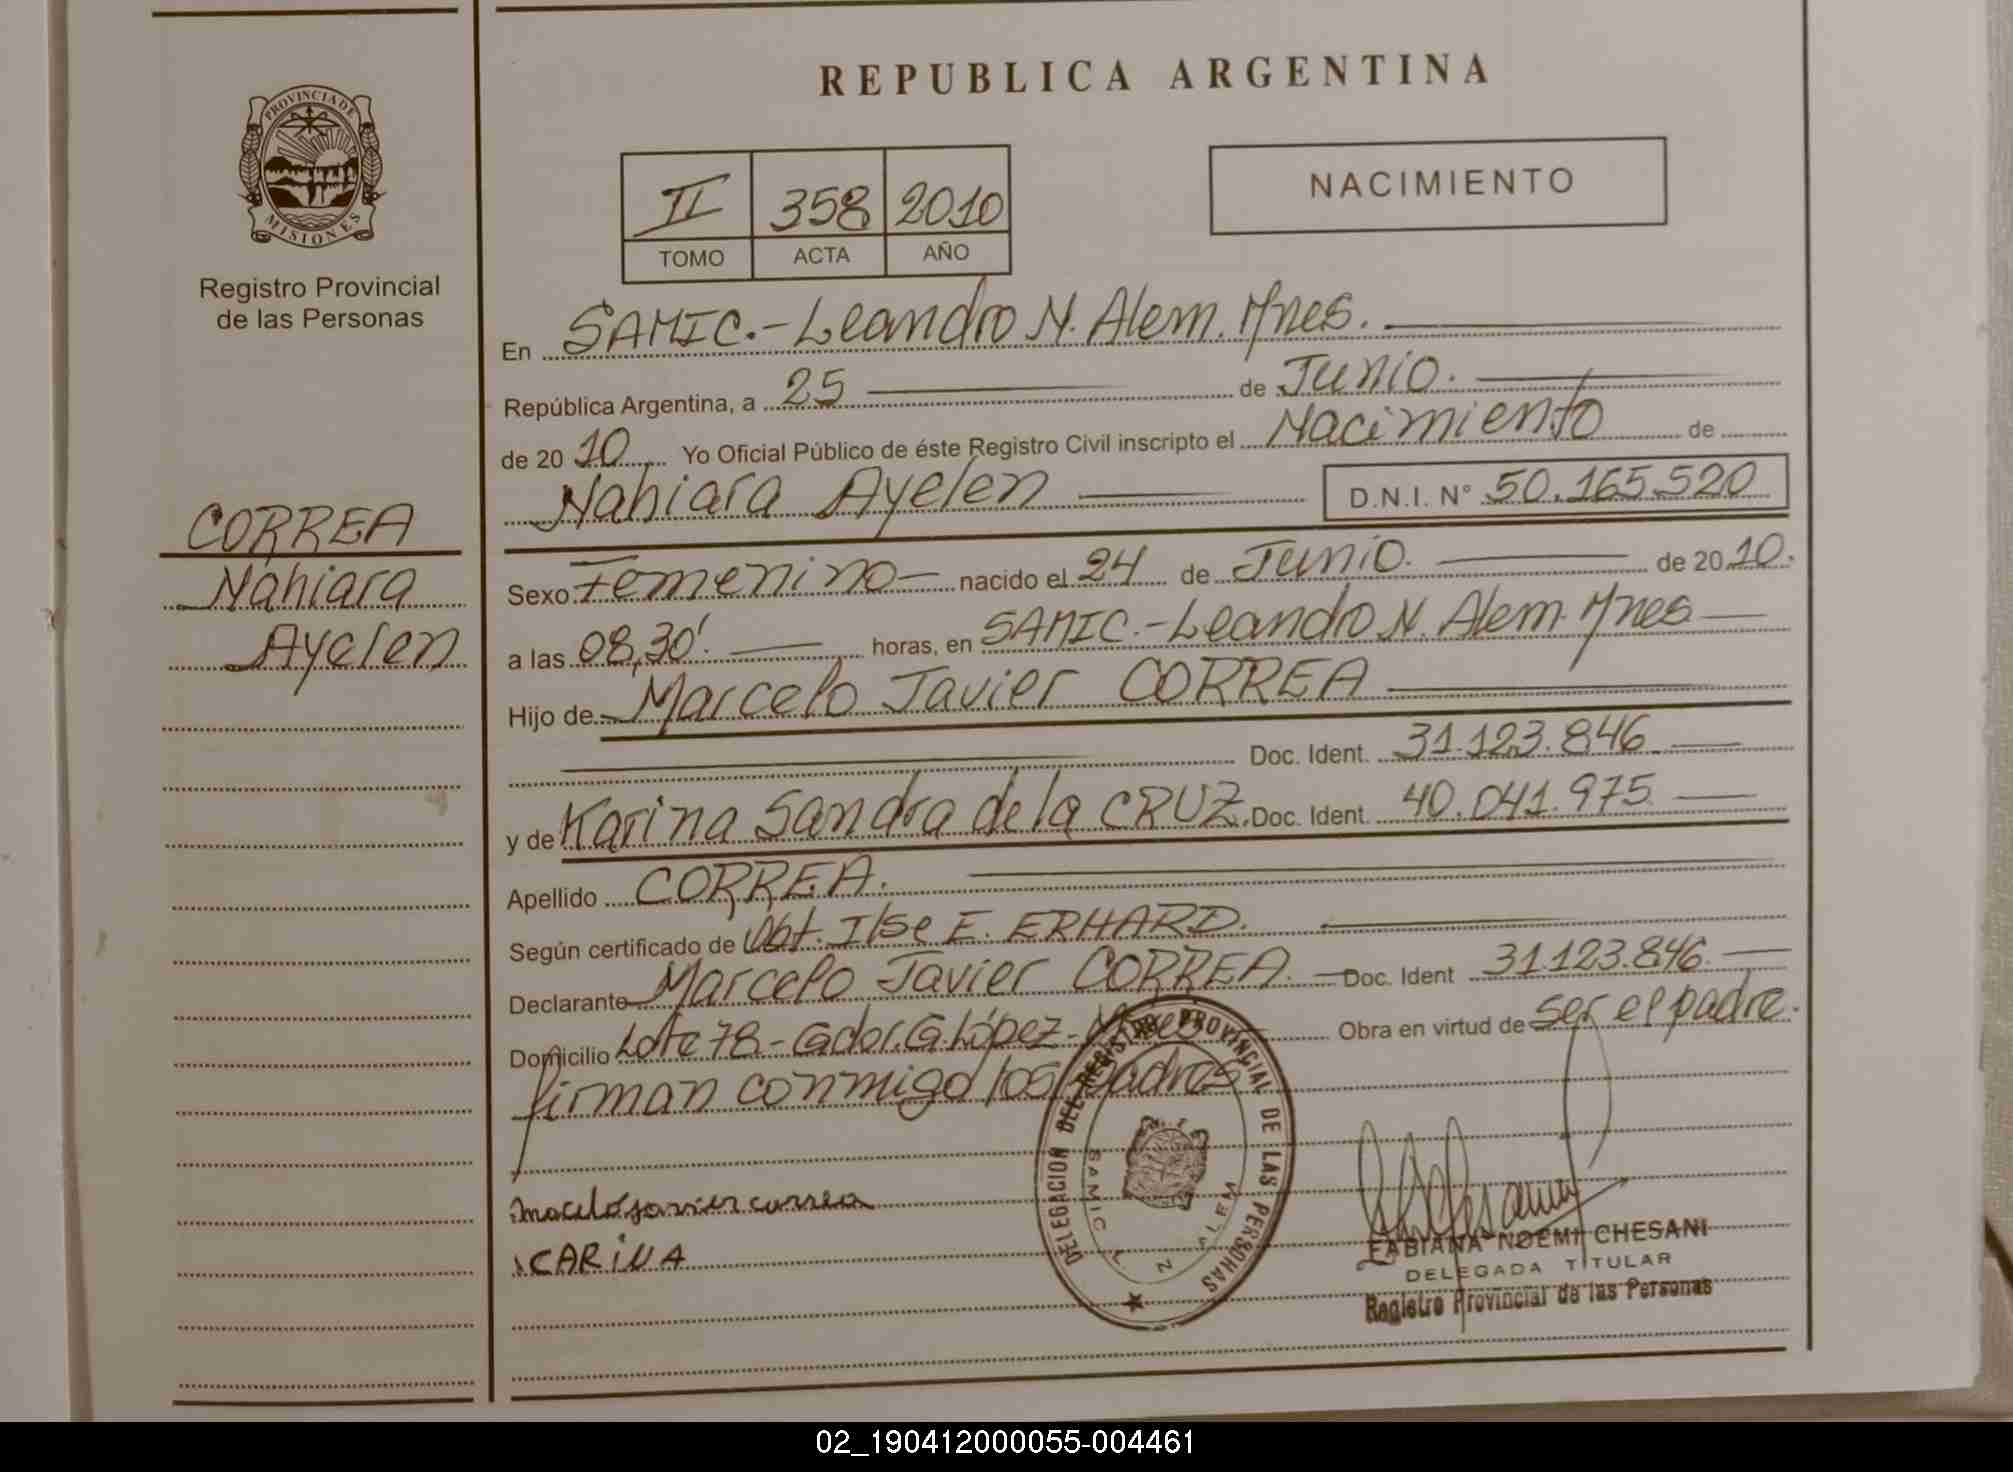 REPUBLICA ARGENTINA
PROVINCIA DE
MISIONES
Registro Provincial
de las Personas
II 358 2010
TOMO ACTA AÑO
NACIMIENTO
CORREA
Nahiara
Ayelen
En SAMIC.-Leandro N. Alem. Mnes.
República Argentina, a 25 de Junio.
de 2010 Yo Oficial Público de éste Registro Civil inscripto el Nacimiento de
Nahiara Ayelen D.N.I. N° 50.165.520
Sexo Femenino nacido el 24 de Junio. de 2010.
a las 08,30' horas, en SAMIC.-Leandro N. Alem. Mnes
Hijo de Marcelo Javier CORREA
Doc. Ident. 31.123.846
y de Karina Sandra de la CRUZ. Doc. Ident. 40.041.975
Apellido CORREA.
Según certificado de Obt. Ilse E. ERHARD.
Declarante Marcelo Javier CORREA. Doc. Ident 31.123.846.
Domicilio Lote 78-Gdor.G.López- Obra en virtud de ser el padre.
firman conmigo los padres
marcelo javier correa
CARINA
DELEGACION DEL REGISTRO PROVINCIAL DE LAS PERSONAS
SAMIC L N ALEM
FABIANA NOEMI CHESANI
DELEGADA TITULAR
Registro Provincial de las Personas
02_190412000055-004461